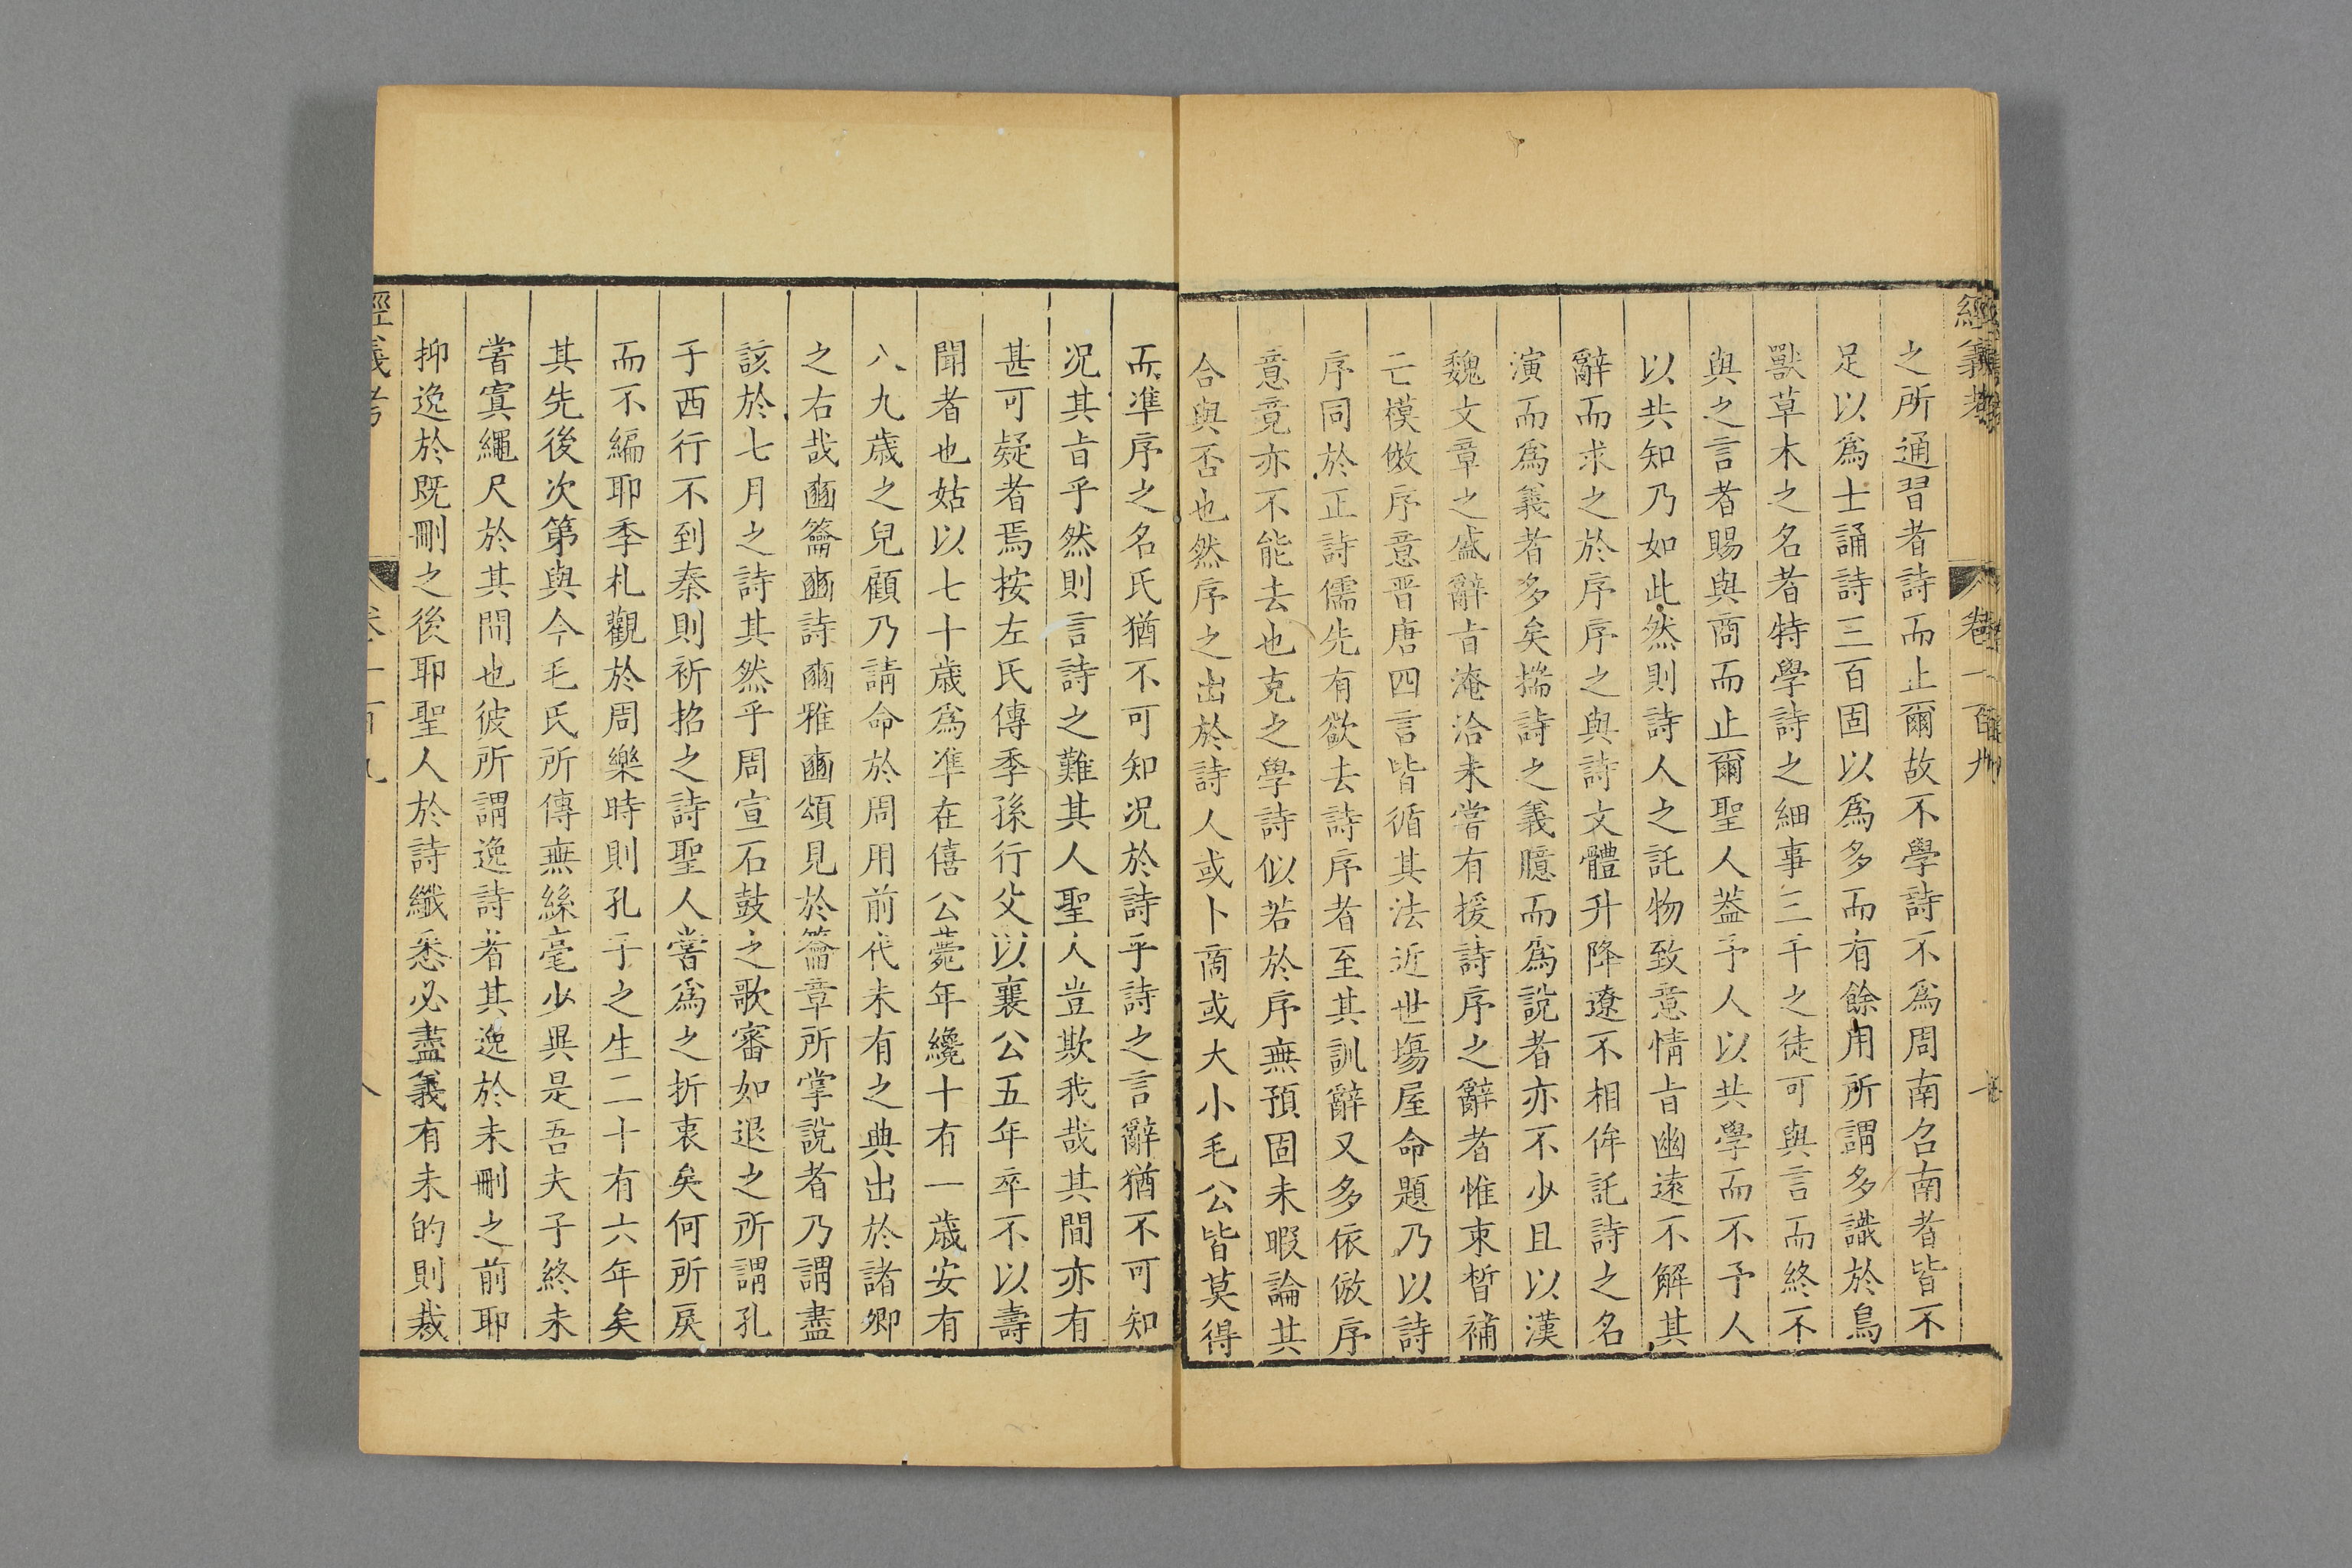 經義考 卷一百九
之所通習者詩而止爾故不學詩不爲周南召南者皆不
足以爲士誦詩三百固以爲多而有餘用所謂多識於鳥
獸草木之名者特學詩之細事三千之徒可與言而終不
與之言者賜與商而止爾聖人葢予人以共學而不予人
以共知乃如此然則詩人之託物致意情㫖幽遠不解其
辭而求之於序序之與詩文體升降遼不相侔託詩之名
演而爲義者多矣揣詩之義臆而爲說者亦不少且以漢
魏文章之盛辭㫖淹洽未嘗有援詩序之辭者惟束晳補
亡模倣序意晋唐四言皆循其法近世塲屋命題乃以詩
序同於正詩儒先有欲去詩序者至其訓辭又多依倣序
意竟亦不能去也克之學詩似若於序無預固未暇論其
合與否也然序之出於詩人或卜商或大小毛公皆莫得
而準序之名氏猶不可知况於詩乎詩之言辭猶不可知
况其㫖乎然則言詩之難其人聖人豈欺我哉其間亦有
甚可疑者焉按左氏傳季孫行父以襄公五年卒不以壽
聞者也姑以七十歲爲準在僖公薨年纔十有一歲安有
八九歲之兒顧乃請命於周用前代未有之典出於諸卿
之右哉豳籥豳詩豳雅豳頌見於籥章所掌說者乃謂盡
該於七月之詩其然乎周宣石鼓之歌審如退之所謂孔
子西行不到秦則祈招之詩聖人嘗爲之折衷矣何所戾
而不編耶季札觀於周樂時則孔子之生二十有六年矣
其先後次第與今毛氏所傳無絲毫少異是吾夫子終未
嘗寘繩尺於其間也彼所謂逸詩者其逸於未刪之前耶
抑逸於既刪之後耶聖人於詩纖悉必盡義有未的則裁
經義考